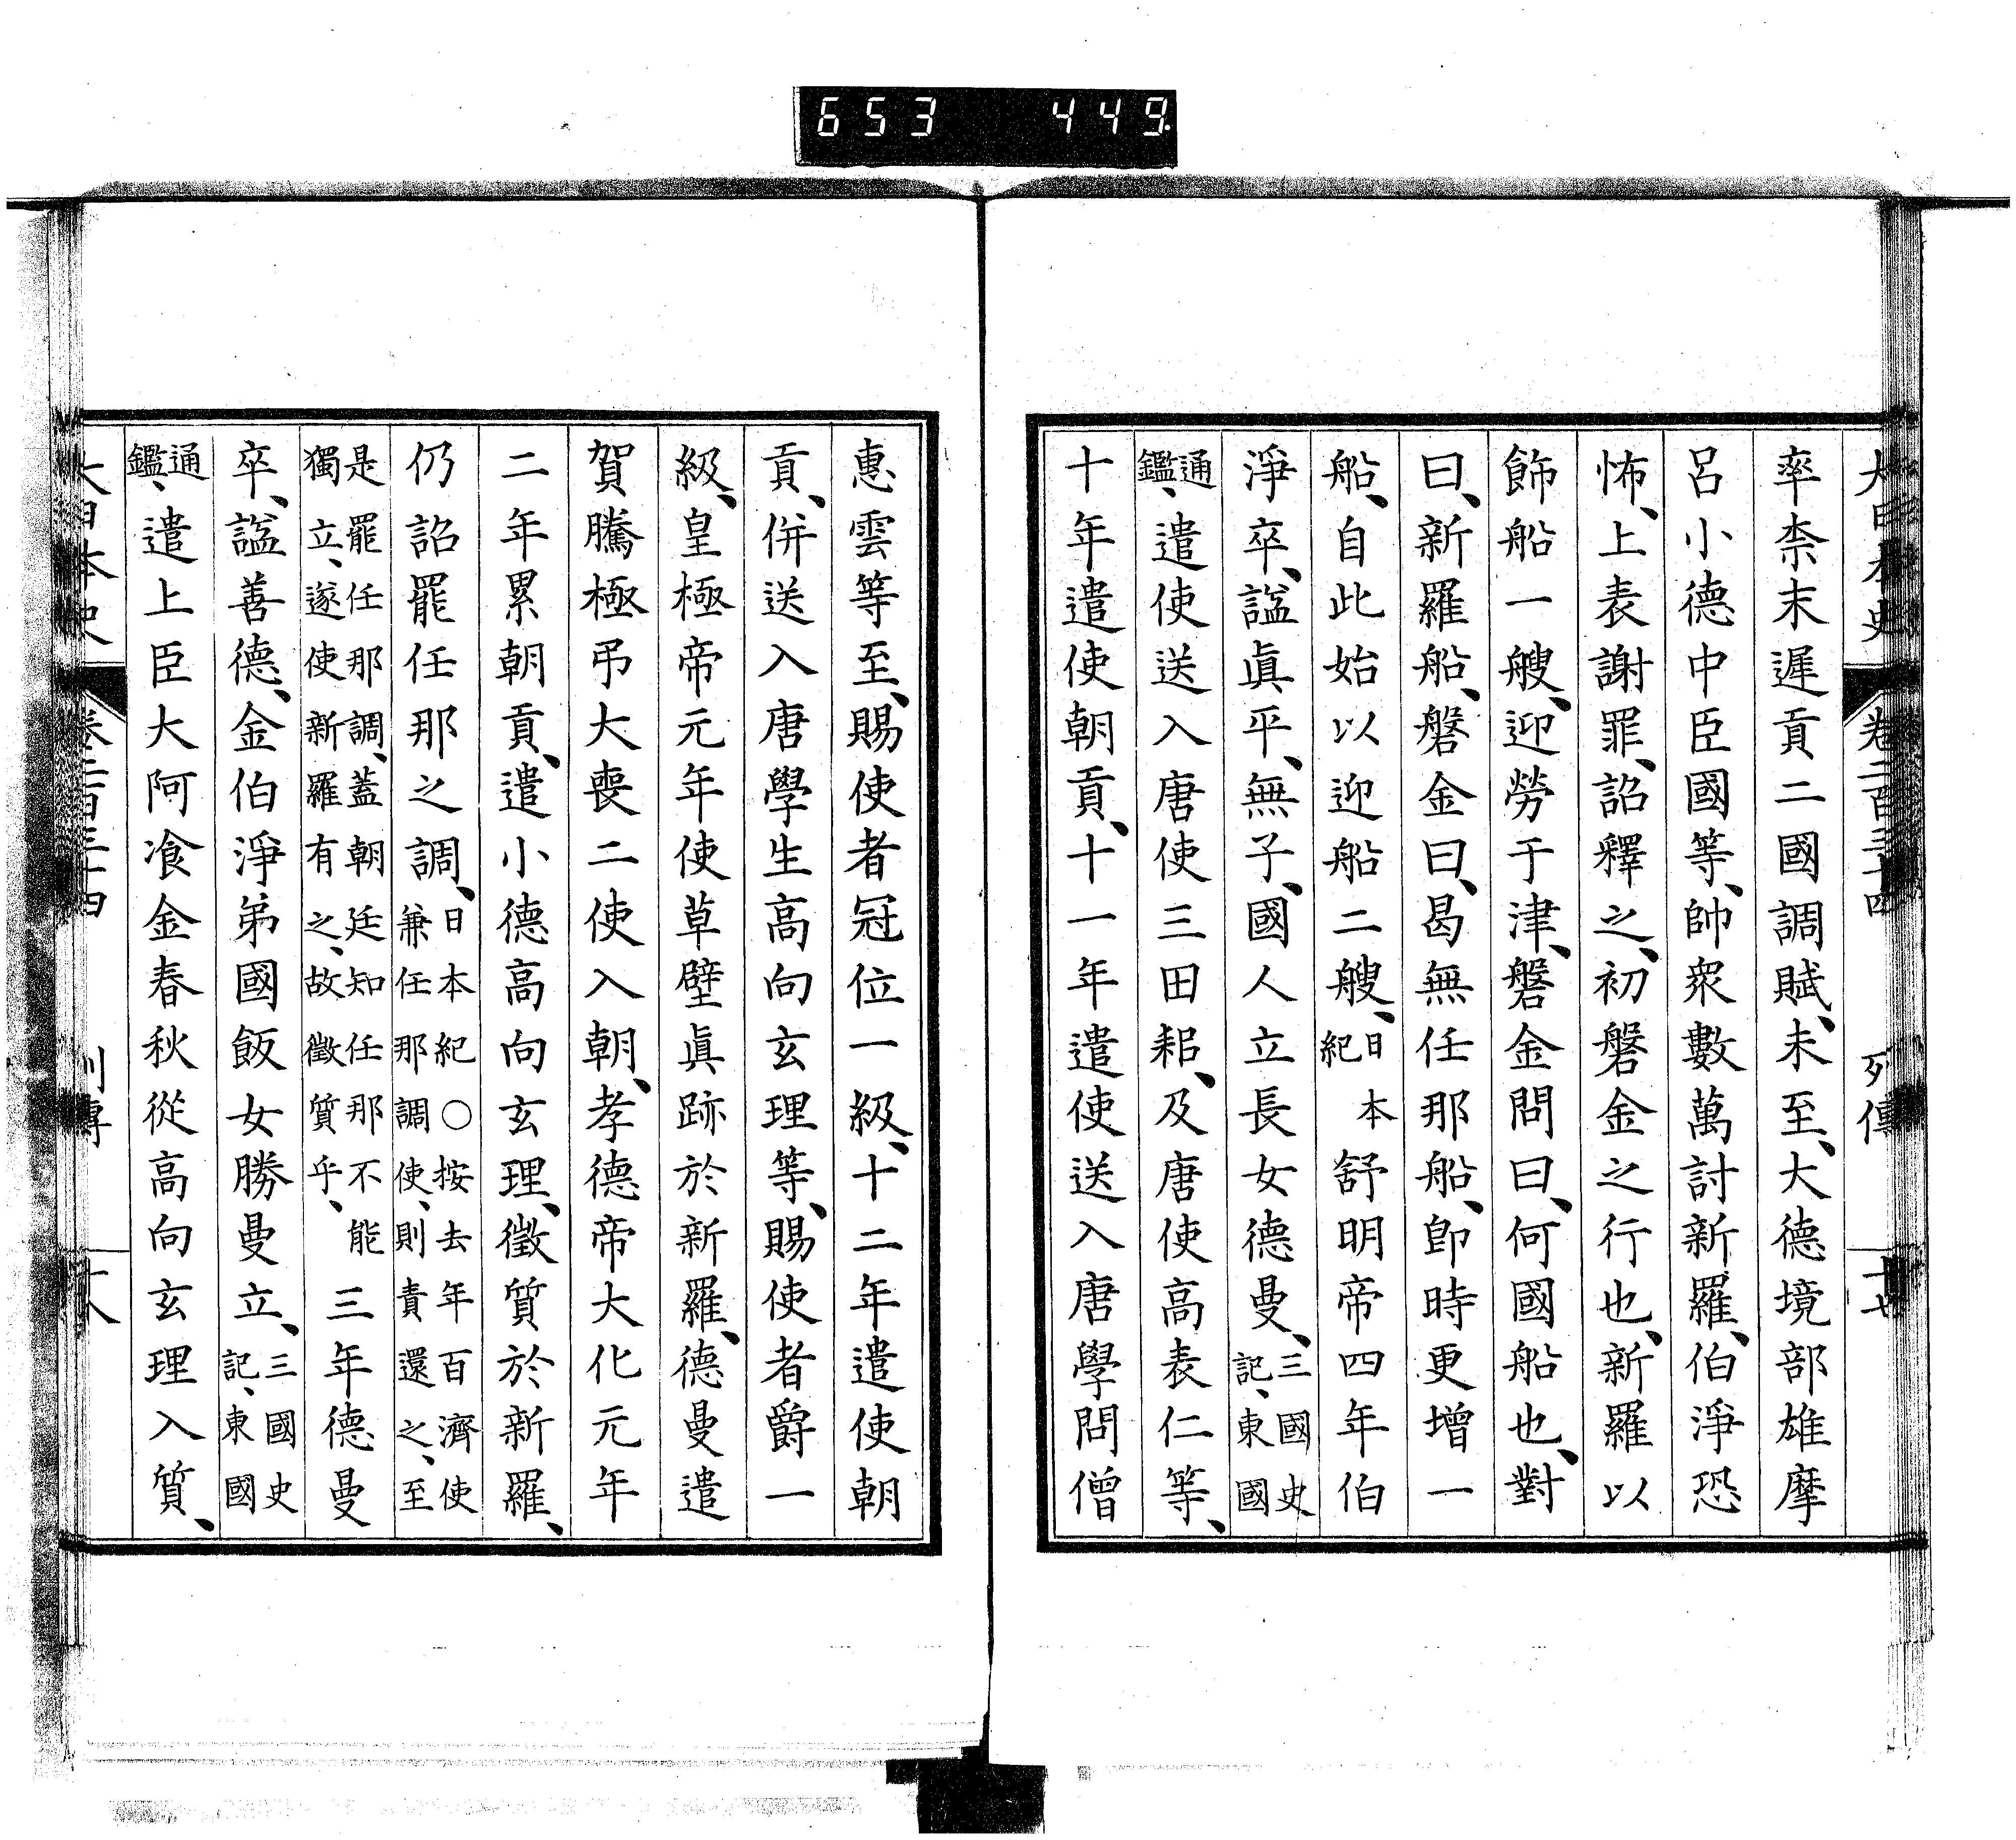 653 449
大日本史 卷二百三十四 列傳 十七
率柰末遲貢二國調賦、未至、大德境部雄摩
呂小德中臣國等、帥衆數萬討新羅、伯淨恐
怖、上表謝罪、詔釋之、初磐金之行也、新羅以
飾船一艘、迎勞于津、磐金問曰、何國船也、對
曰、新羅船、磐金曰、曷無任那船、卽時更增一
船、自此始以迎船二艘、日本紀 舒明帝四年伯
淨卒、謚眞平、無子、國人立長女德曼、三國史記、東國
通鑑、遣使送入唐使三田耜、及唐使高表仁等、
十年遣使朝貢、十一年遣使送入唐學問僧
惠雲等至、賜使者冠位一級、十二年遣使朝
貢、併送入唐學生高向玄理等、賜使者爵一
級、皇極帝元年使草壁眞跡於新羅、德曼遣
賀騰極弔大喪二使入朝、孝德帝大化元年
二年累朝貢、遣小德高向玄理、徵質於新羅、
仍詔罷任那之調、日本紀○按去年百濟使兼任那調使、則責還之、至
是罷任那調、蓋朝廷知任那不能獨立、遂使新羅有之、故徵質乎、三年德曼
卒、謚善德、金伯淨弟國飯女勝曼立、三國史記、東國
通鑑、遣上臣大阿飡金春秋從高向玄理入質、
大日本史 卷二百三十四 列傳 十八